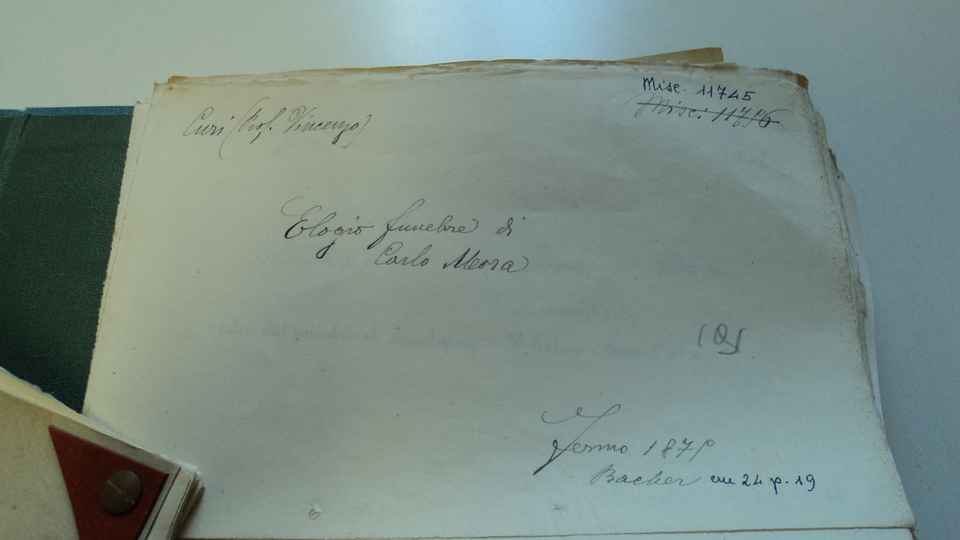 Misc. 11745
Misc. 11746
Curi (Prof. Vincenzo)
Elogio funebre di
Carlo Mora
(Q)
Fermo 1879
Bacher cm 24 p. 19